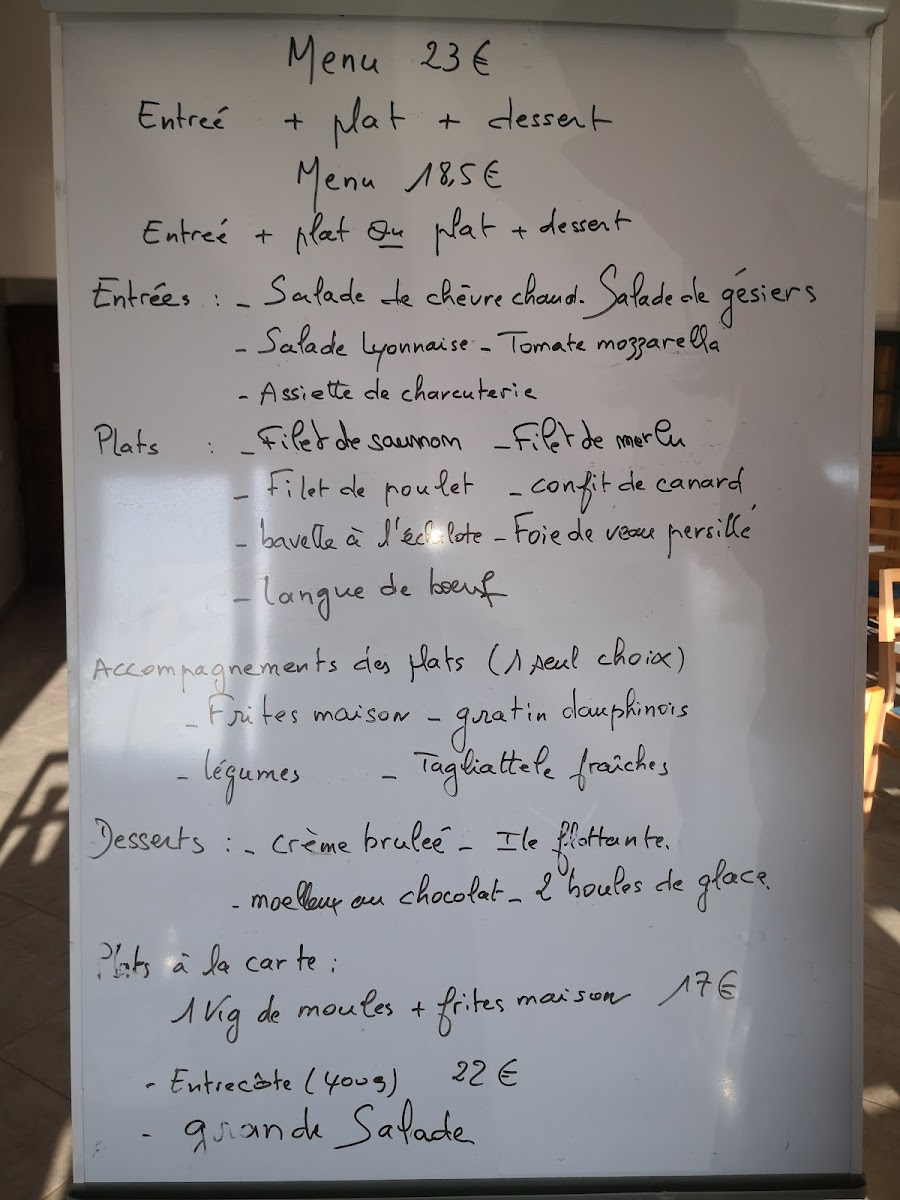 Menu 23 €
Entreé + plat + dessert
Menu 18,5 €
Entreé + plat ou plat + dessert
Entrées : - Salade de chèvre chaud. Salade de gésiers
- Salade Lyonnaise - Tomate mozzarella
- Assiette de charcuterie
Plats : - Filet de saumon - Filet de merlu
- Filet de poulet - confit de canard
- bavette à l'échalote - Foie de veau persillé
- langue de boeuf
Accompagnements des plats (1 seul choix)
- Frites maison - gratin dauphinois
- légumes - Tagliattele fraîches
Desserts : - crème bruleé - Ile flottante.
- moelleux au chocolat - 2 boules de glace.
Plats à la carte :
1 Kg de moules + frites maison 17 €
- Entrecôte (400g) 22 €
- grande Salade